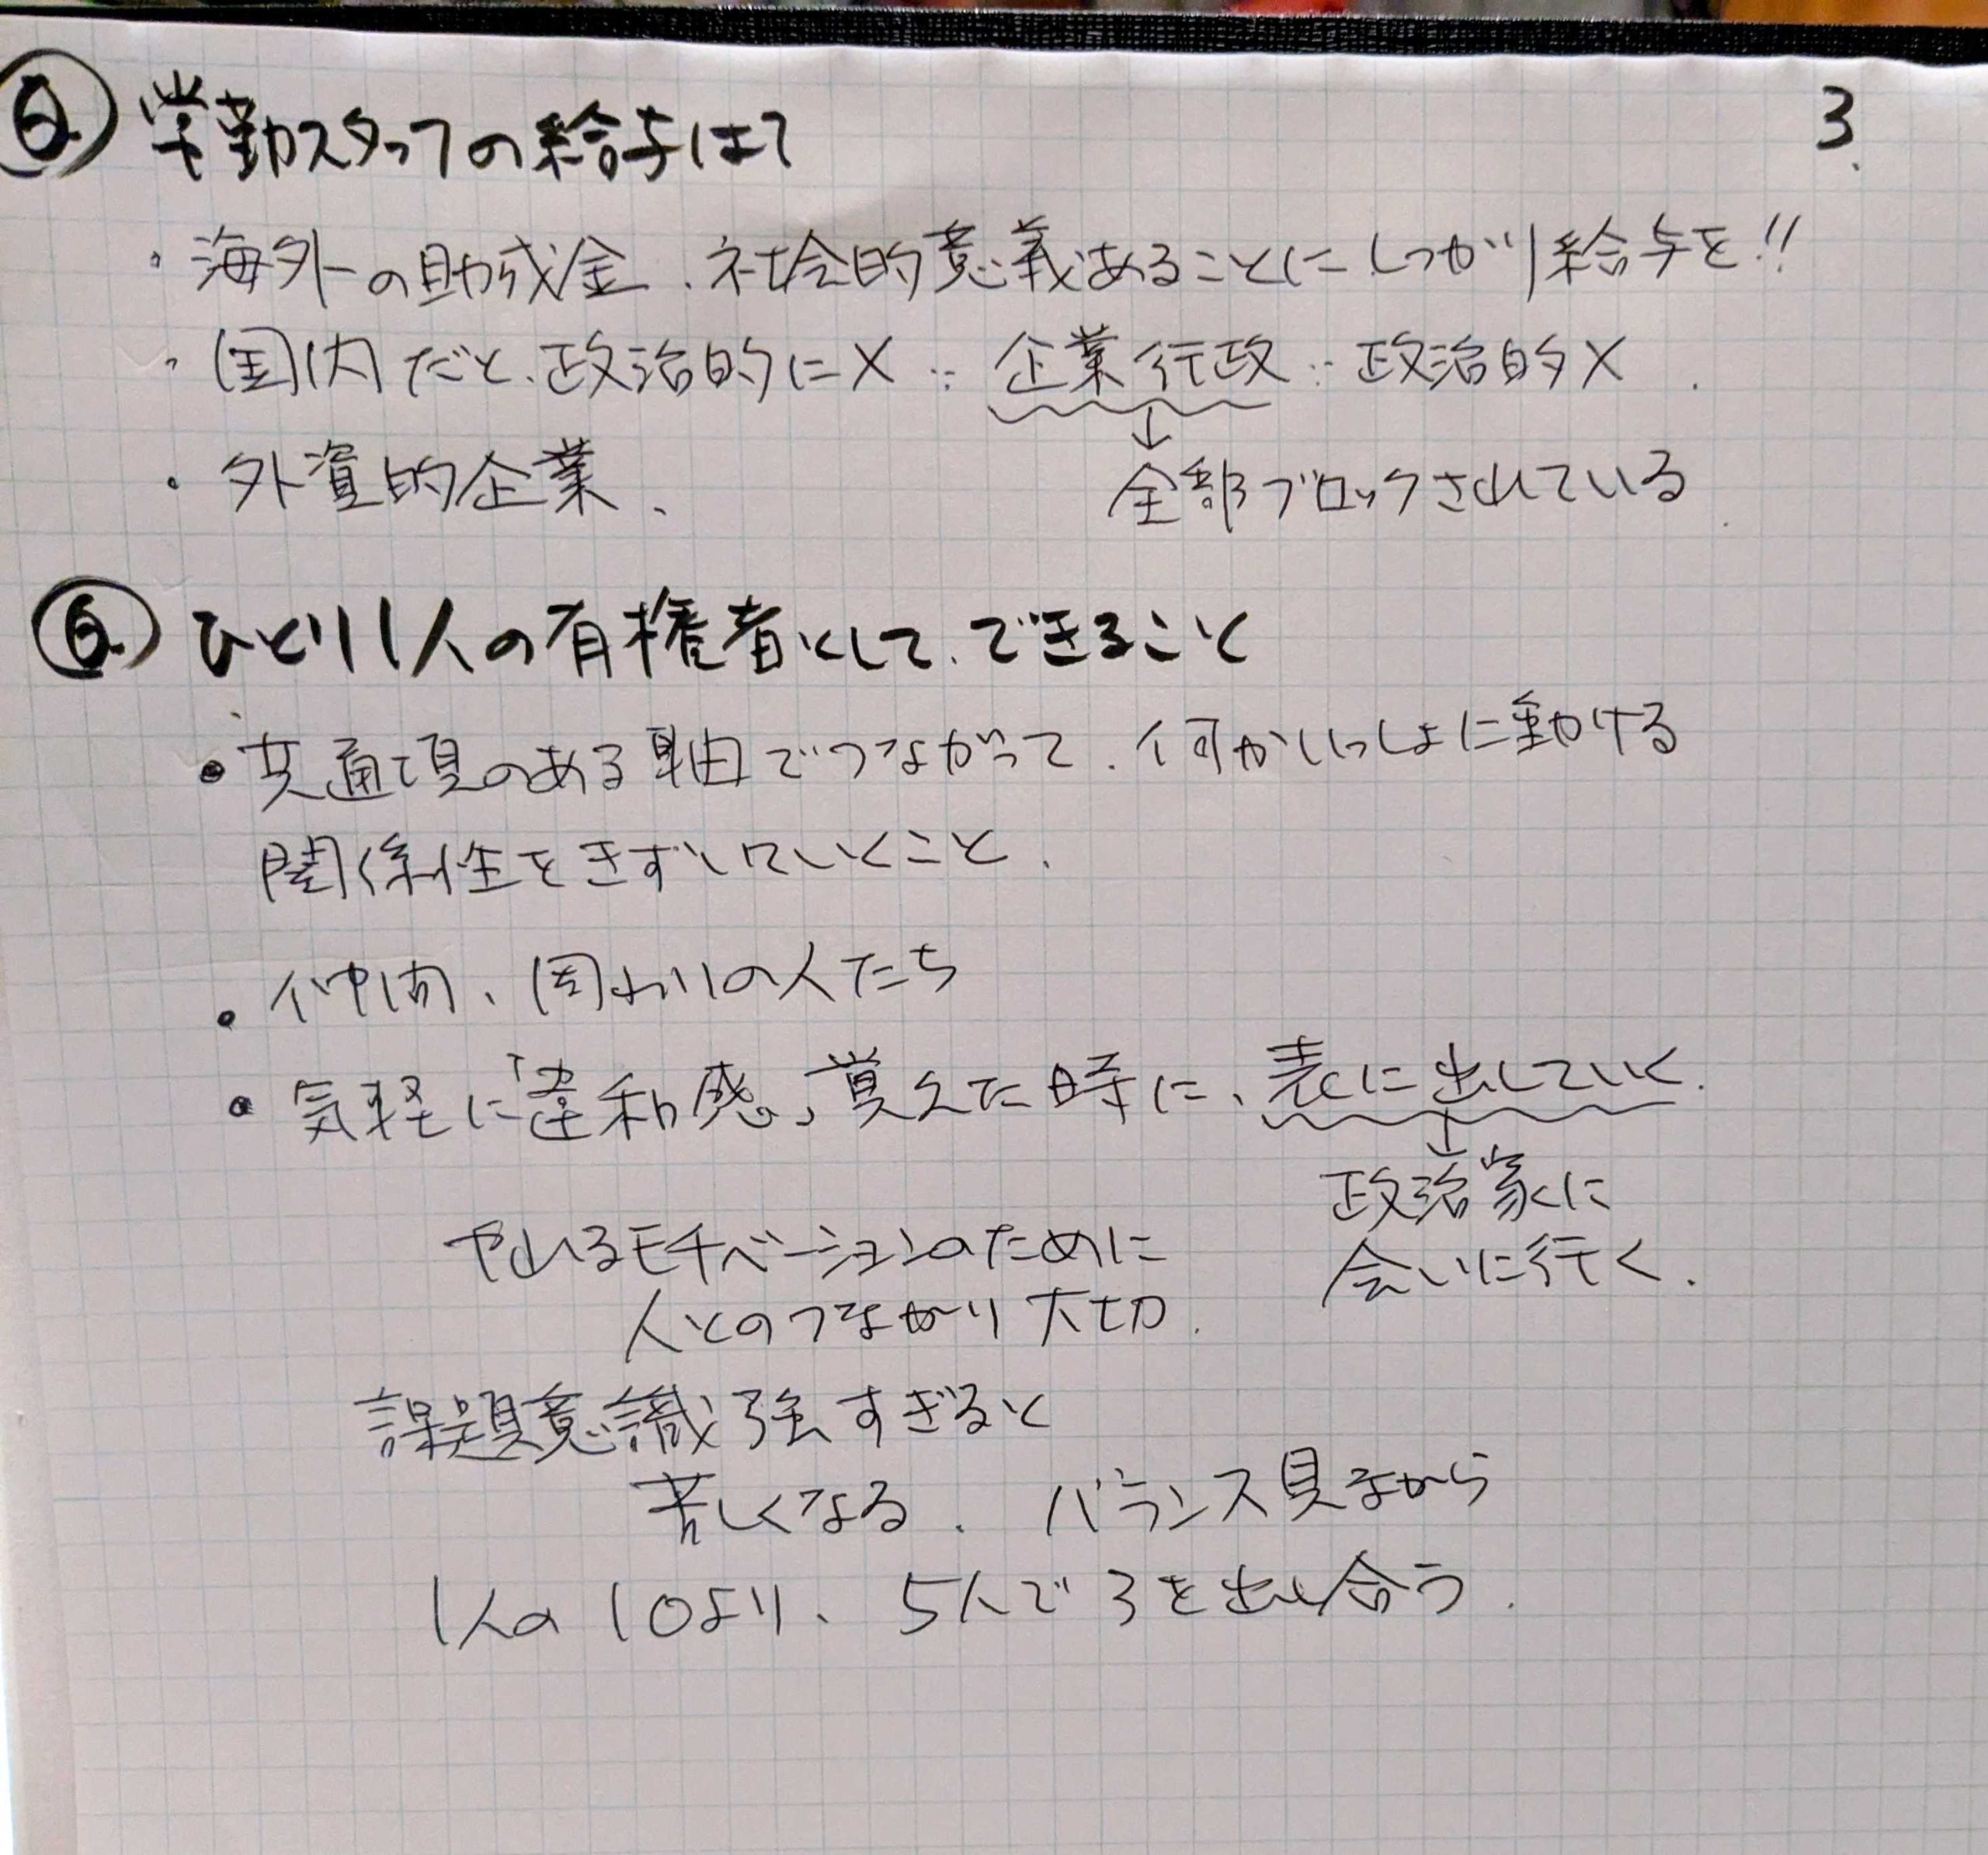 3.
Q. 常勤スタッフの給与は?
・海外の助成金、社会的意義あることにしっかり給与を!!
・国内だと、政治的に× ∵ 企業 行政 ∵ 政治的×
↓
・外資的企業、 全部ブロックされている
Q. ひとり1人の有権者として、できること
・共通項のある軸でつながって、何かいっしょに動ける
関係性をきずいていくこと、
・仲間、周わりの人たち
・気軽に「違和感」覚えた時に、表に出していく
↓
政治家に
会いに行く、
やれるモチベーションのために
人とのつながり大切、
課題意識強すぎると
苦しくなる、バランス見ながら
1人の10より、5人で3を出し合う、